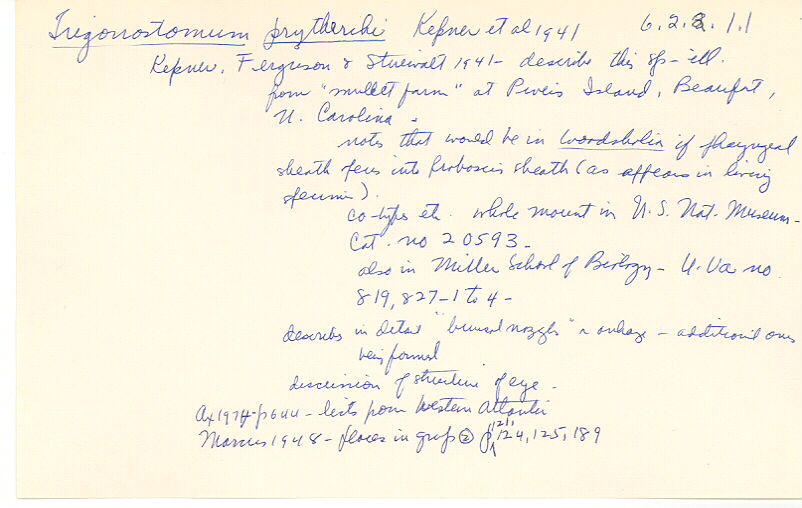 Trigonostomum prytherchi Kepner et al 1941 6.2.2.1.1
Kepner, Ferguson & Stirewalt 1941 - describe this sp - ill.
from "mullet farm" at Piveis Island, Beaufort,
N. Carolina.
notes that would be in Woodsholia if pharyngeal
sheath into Proboscis sheath (as appears in living
specimen).
co-types etc. whole mount in U.S. Nat. Museum -
Cat. no 20593 -
also in Miller School of Biology - U. Va no
819,827-1 to 4 -
describes in detail "bursal nozzles" - additional ones
being formed
discussion of structure of eye -
Ax 1971 - p644 - lists from Western Atlantic
Marcus 1948 - places in group ② p 121, 124, 125, 189